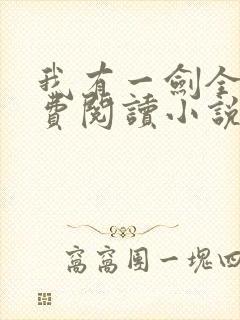 我有一劍全
費閱讀小說
窩窩團一塊四